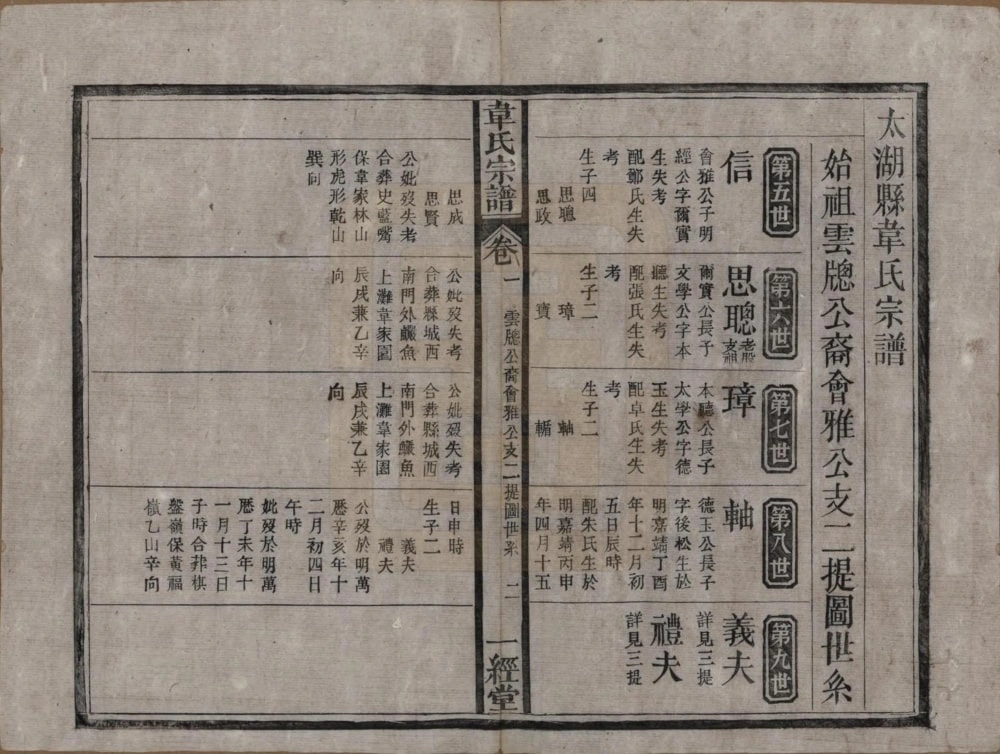 太湖縣韋氏宗譜
始祖雲牕公裔會雅公支二提圖世系
第五世
信
會雅公子明
經公字爾實
生失考
配鄭氏生失
考
生子四
思聰
思政
思成
思賢
公妣歿失考
合葬史藍嘴
保韋家林山
形虎形乾山
巽向
第六世
思聰
老股
支祖
爾實公長子
文學公字本
聽生失考
配張氏生失
考
生子二
璋
寶
公妣歿失考
合葬縣城西
南門外鱖魚
上灘韋家園
辰戌兼乙辛
向
第七世
璋
本聽公長子
太學公字德
玉生失考
配卓氏生失
考
生子二
軸
輴
公妣歿失考
合葬縣城西
南門外鱖魚
上灘韋家園
辰戌兼乙辛
向
第八世
軸
德玉公長子
字後松生於
明嘉靖丁酉
年十二月初
五日辰時
配朱氏生於
明嘉靖丙申
年四月十五
日申時
生子二
義夫
禮夫
公歿於明萬
曆辛亥年十
二月初四日
午時
妣歿於明萬
曆丁未年十
一月十三日
子時合葬棋
盤嶺保黃福
嶽乙山辛向
第九世
義夫
詳見三提
禮夫
詳見三提
韋氏宗譜
卷一
雲牕公裔會雅公支二提圖世系
二
一經堂